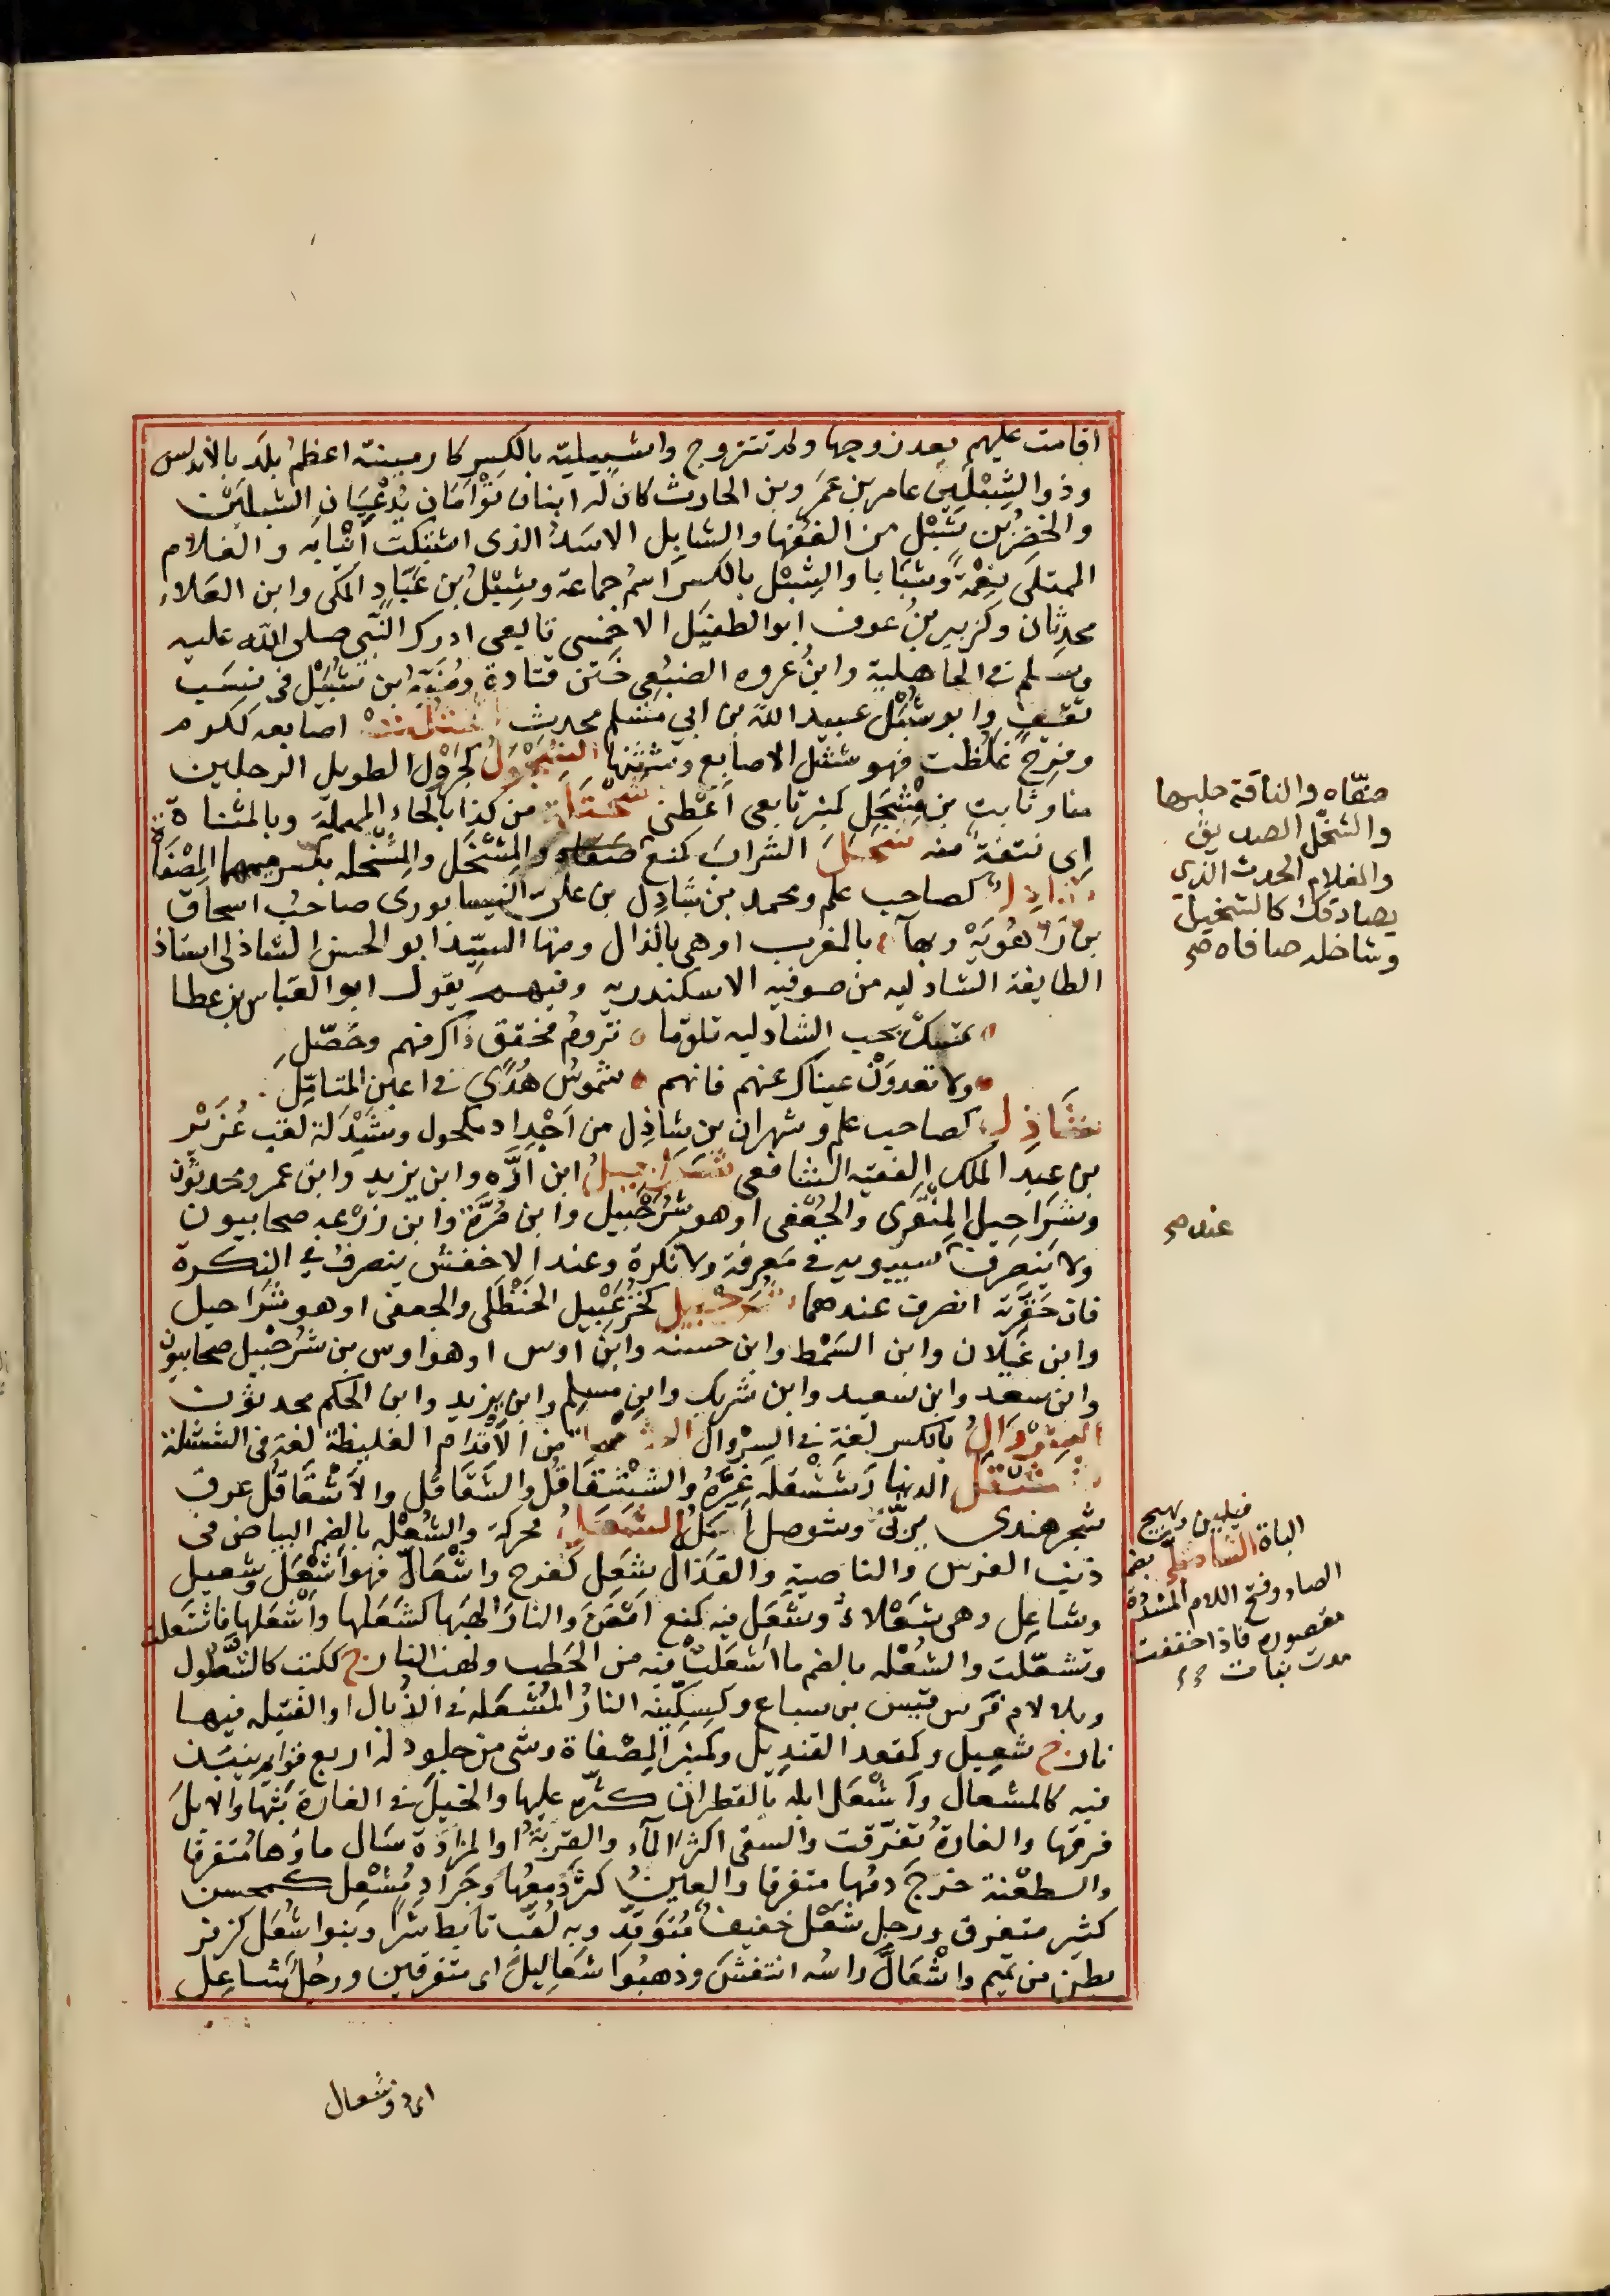 اقامت عليهم بعد زوجها ولم تتزوج واشبيلية بالكسر كارمينية اعظم بلد بالاندلس
وذو الشِبْلَين عامر بن عمرو بن الحارث كان له ابنان تَوْأَمَان يُدْعَيَان الشبلين
والخضر بن شِبْل من الفقها والشابل الاسد الذى اشتبكت انيابه والغلام
الممتلى نِعْمَةً وشبابا والشِبْل بالكسر اسم جماعة وشِبْل بن عَبّاد المكى وابن العلاء
محدثان وكزبير بن عوف ابو الطفيل الاحمسى تابعى ادرك النبى صلى الله عليه
وسلم فى الجاهلية وابن عروه الضبعى ختن قتادة ومُنَبِّه بن شُبَيْل فى نسب
ثقيف وابو شُبَيْل عبيد الله بن ابى مسلم محدث شثلت اصابعه ككرم
وفرح غلظت فهو شثل الاصابع وشثنها الشَجْوَلُ كجَرْوَل الطويل الرجلين
منا وثابت بن مِشْجَل كمنبر تابعى اَعْطِنى شَحْتَلة من كذا بالحاء المهملة وبالمثناة
اى نتفة منه شَخَلَ الشراب كمنع صفاه والمِشْخَل والمِشْخله بكسر ميمهما المِصْفَاة
شادل كصاحب علم ومحمد بن شادِل بن على النيسابورى صاحب اسحاق
بن راهُويَهْ وبهاء بالمغرب او هى بالذال ومنها السيد ابو الحسن الشاذلى استاذ
الطايفة الشادليه من صوفيه الاسكندريه وفيهم يقول ابو العباس بن عطا
تمسك بحب الشادليه تلق ما تروم فحقق ذاك منهم وحَصّلِ
ولا تعدوَنْ عيناك عنهم فانهم شموسُ هُدًى فى اعين المتامِّل
شَاذِل كصاحب علم وشهران بن شاذِل من اَجْداد مكحول وشَيْذَلة لقب عُزَيْز
بن عبد الملك الفقيه الشافعى شَرَاحِيلُ ابن أدَّه وابن يزيد وابن عمرو محدثون
وشَرَاحيل المِنْقَرى والجُعْفى او هو شُرَحْبِيل وابن مُرَّة وابن زرْعه صحابيون
ولا ينصرف سيبويه فى معرفة ولا نكرة وعند الاخفش ينصرف فى النكرة
فان حَقّرته انصرف عندهما شُرَحْبِيل كخُزَعْبِيل الحَنْظَلى والجعفى او هو شَرَاحيل
وابن غَيْلان وابن السَمْط وابن حسنه وابن اوس او هو اوس بن شُرَحْبِيل صحابيون
وابن سعد وابن سعيد وابن شريك وابن مسلم وابن يزيد وابن الحكم محدثون
الشِرْوالُ بالكسر لغة فى السِرْوال من الاقدام الغليظة لغة فى الششلة
شَشْقَل الدينار شَشْقله عَيَّرَهُ والشَشْقَاقُل والشَقَاقُل والاَشْقَاقُل عرق
شجر هندى يربّى وشوصل اكل الشَعَلُ محركة والشُعْله بالضم البياض فى
ذنب الفرس والناصية والقَذال شعِل كفرح واشْعَالّ فهو اَشْعَل وشعيل
وشاعِل وهى شَعْلاءُ وشَعَل فيه كمنع امعن والنار الهبها كشَعَلها واَشْعَلها فاشتعلت
وتشعّلت والشُعْله بالضم ما اَشعَلت فيه من الحَطب ولهب النار ج ككتب كالشُعْلول
وبلا لام فرَس قيس بن سباع وكسكينه النار المُشعَله فى الذُبال او الفتيله فيها
نار ج شعِيل وكمقعد القنديل وكمنبر المِصْفاة وشى من جلود له اربع قوايم ينبذ
فيه كالمشعال واَشْعَل ابله بالقطران كثّره عليها والخيل فى الغارة بَثّها والابلَ
فرقها والغارةُ تفرّقت والسقى اكثر الماء والقربةُ او المزادة سَال ماؤها متفرقا
والطعنة خرَج دمُها متفرقا والعينُ كثر دمعُها وجَرادٌ مُشْعِل كمحسن
كثير متفرق ورجل شَعْل خفيف مُتوقّد وبه لُقّب تابط شرًا وبنوا شُعَل كزفر
بطن من تميم واشْعَالَّ راسُه انتفشَ وذهبُوا شعَاليل اى متفرقين ورجُل شاعِل
صفّاه والناقة حلبها
والشخل الصديق
والغلام الحدث الذى
يصادقك كالشخيل
وشاخله صافاه صح
عند صح
فيلين ويهيج
الباة الشاصلى بضم
الصاد وفتح اللام المشددة
مقصوره فاذا خففت
مدت نبات
اى ذوشعال